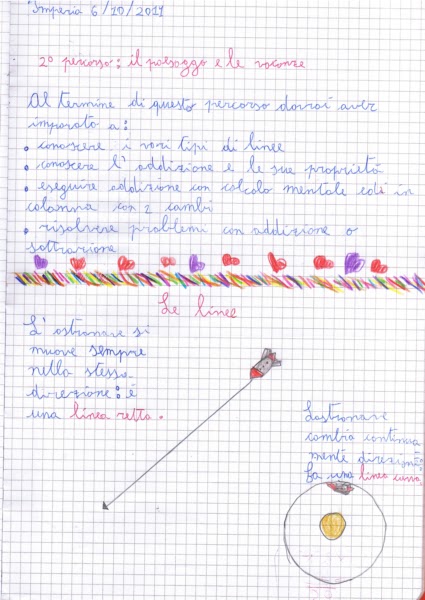 Imperia 6/10/2011
2° percorso: il paesaggio e le vacanze
Al termine di questo percorso dovrai aver
imparato a:
• conoscere i vari tipi di linee
• conoscere l'addizione e le sue proprietà
• eseguire addizione con calcolo mentale ed in
colonna con 2 cambi
• risolvere problemi con addizione o
sottrazione
Le linee
L'astronave si
muove sempre
nella stessa
direzione: é
una linea retta.
Lastronave
cambia continua
mente direzione:
fa una linea curva